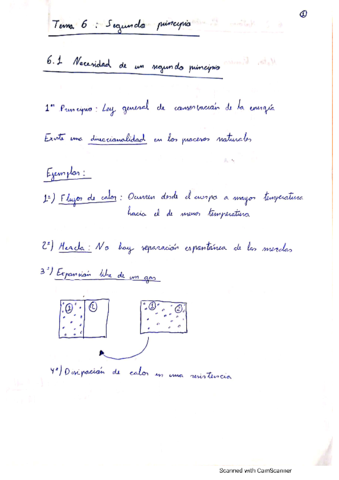 ①
Tema 6 : Segundo principio
6.1 Necesidad de un segundo principio
1er Principio : Ley general de conservación de la energía
Existe una direccionalidad en los procesos naturales
Ejemplos :
1º) Flujos de calor : Ocurren desde el cuerpo a mayor temperatura
hacia el de menor temperatura
2º) Mezcla : No hay separación espontánea de las mezclas
3º) Expansión libre de un gas
① ② ① ②
4º) Disipación de calor en una resistencia
Scanned with CamScanner